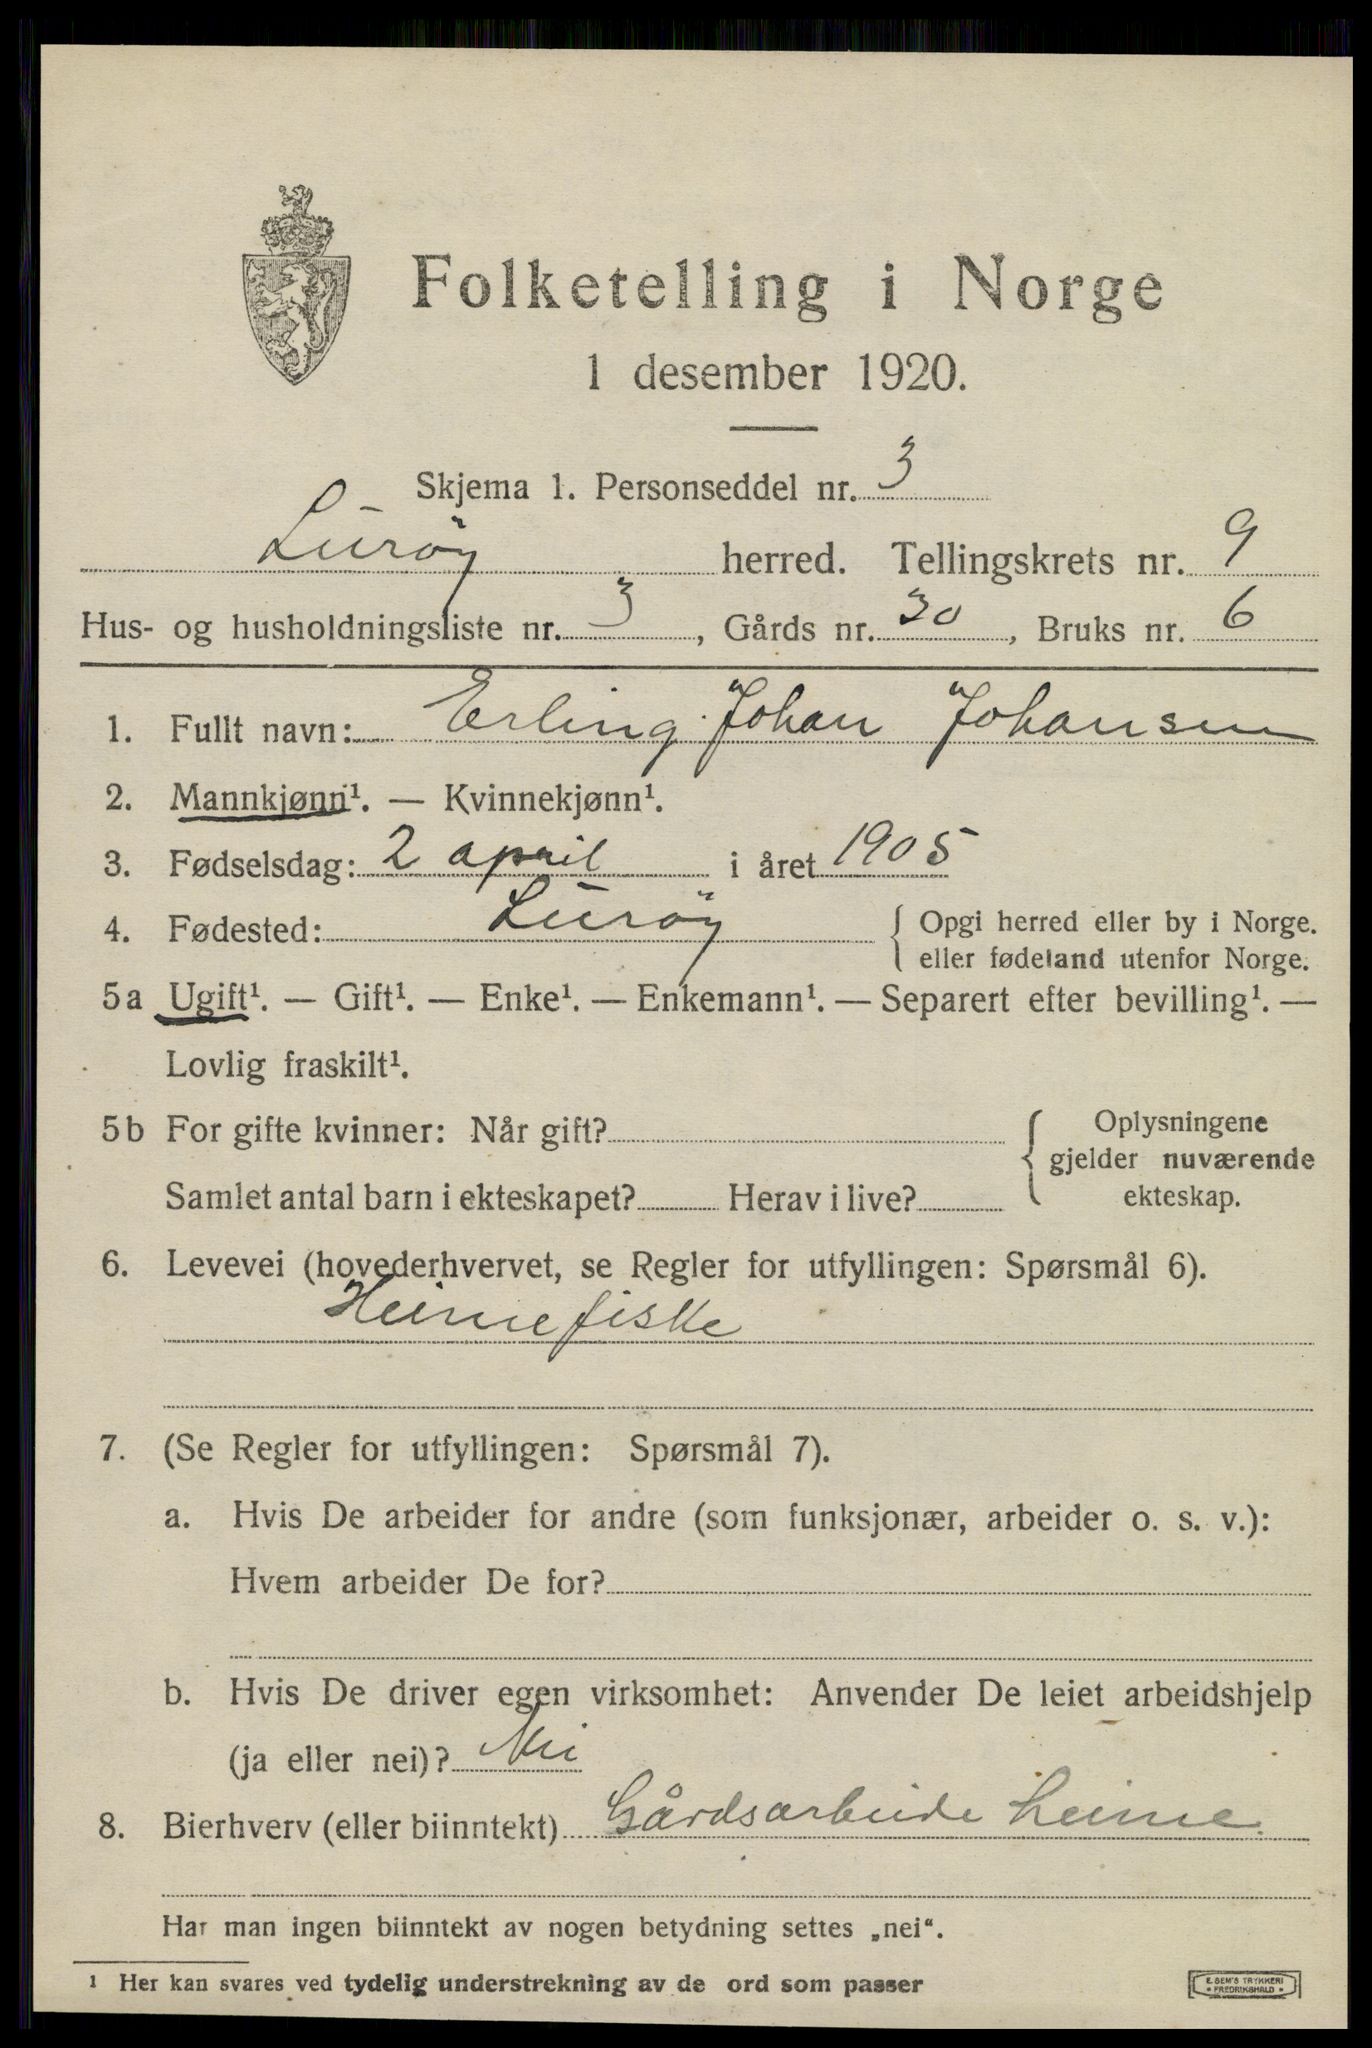 Folketelling i Norge
1 desember 1920.
Skjema 1. Personseddel nr. 3
Lurøy herred. Tellingskrets nr. 9
Hus- og husholdningsliste nr. 3, Gårds nr. 30, Bruks nr. 6
1. Fullt navn: Erling Johan Johansen
2. Mannkjønn¹. — Kvinnekjønn¹.
3. Fødselsdag: 2 april i året 1905
4. Fødested: Lurøy { Opgi herred eller by i Norge.
eller fødeland utenfor Norge.
5a Ugift¹. — Gift¹. — Enke¹. — Enkemann¹. — Separert efter bevilling¹. —
Lovlig fraskilt¹.
5b For gifte kvinner: Når gift? { Oplysningene
gjelder nuværende
Samlet antal barn i ekteskapet? Herav i live? ekteskap.
6. Levevei (hovederhvervet, se Regler for utfyllingen: Spørsmål 6).
Heimefiske
7. (Se Regler for utfyllingen: Spørsmål 7).
a. Hvis De arbeider for andre (som funksjonær, arbeider o. s. v.):
Hvem arbeider De for?
b. Hvis De driver egen virksomhet: Anvender De leiet arbeidshjelp
(ja eller nei)? Nei
8. Bierhverv (eller biinntekt) Gårdsarbeide heime.
Har man ingen biinntekt av nogen betydning settes „nei“.
¹ Her kan svares ved tydelig understrekning av de ord som passer
E. SEM'S TRYKKERI
• FREDRIKSHALD •